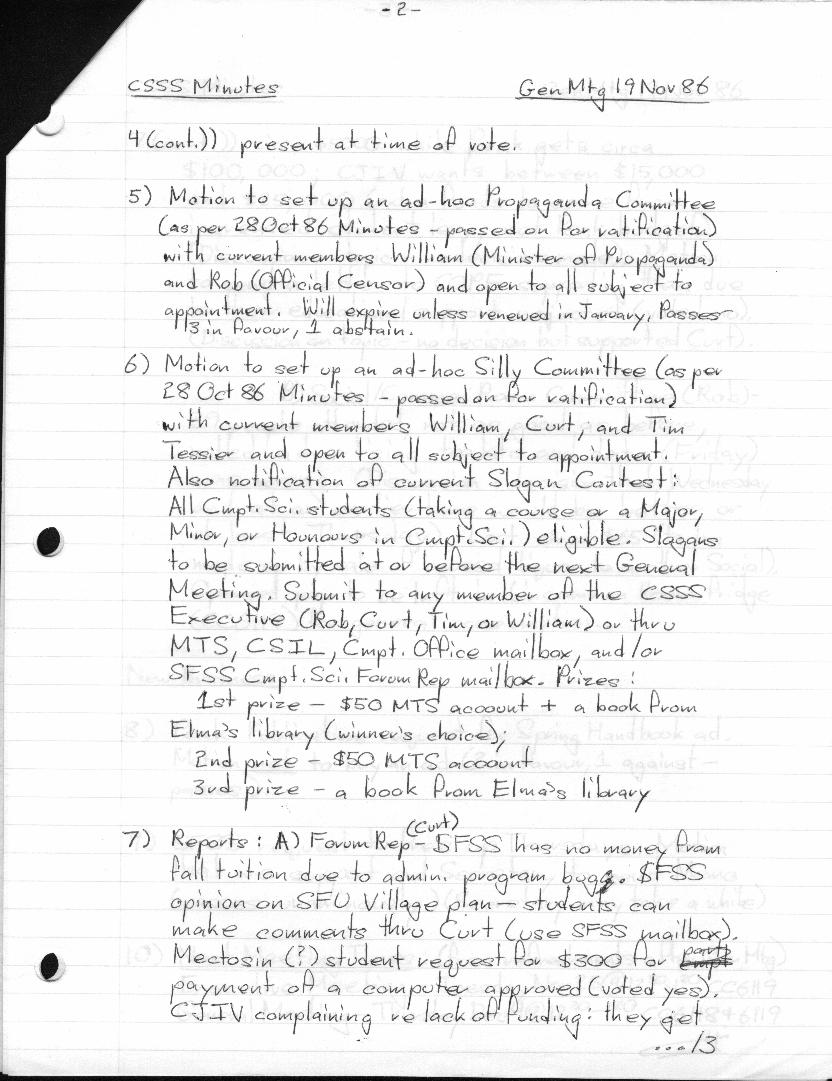 -2-
CSSS Minutes Gen Mtg 19 Nov 86
4 (cont.)) present at time of vote.
5) Motion to set up an ad-hoc Propaganda Committee
(as per 28 Oct 86 Minutes - passed on for ratification)
with current members William (Minister of Propaganda)
and Rob (Official Censor) and open to all subject to
appointment. Will expire unless renewed in January. Passes
3 in favour, 1 abstain.
6) Motion to set up an ad-hoc Silly Committee (as per
28 Oct 86 Minutes - passed on for ratification)
with current members William, Curt, and Tim
Tessier and open to all subject to appointment.
Also notification of current Slogan Contest:
All Cmpt. Sci. students (taking a course or a Major,
Minor, or Hounours in Cmpt. Sci.) eligible. Slogans
to be submitted at or before the next General
Meeting. Submit to any member of the CSSS
Executive (Rob, Curt, Tim, or William) or thru
MTS, CSIL, Cmpt. Office mailbox, and/or
SFSS Cmpt. Sci. Forum Rep mailbox. Prizes:
1st prize - $50 MTS account + a book from
Elma's library (winner's choice);
2nd prize - $50 MTS account
3rd prize - a book from Elma's library
(Curt)
7) Reports: A) Forum Rep - SFSS has no money from
fall tuition due to admin. program bugs. SFSS
opinion on SFU Village plan - students can
make comments thru Curt (use SFSS mailbox).
Mectosin (?) student request for $300 for part
payment of a computer approved (voted yes).
CJIV complaining re lack of funding: they get
.../3